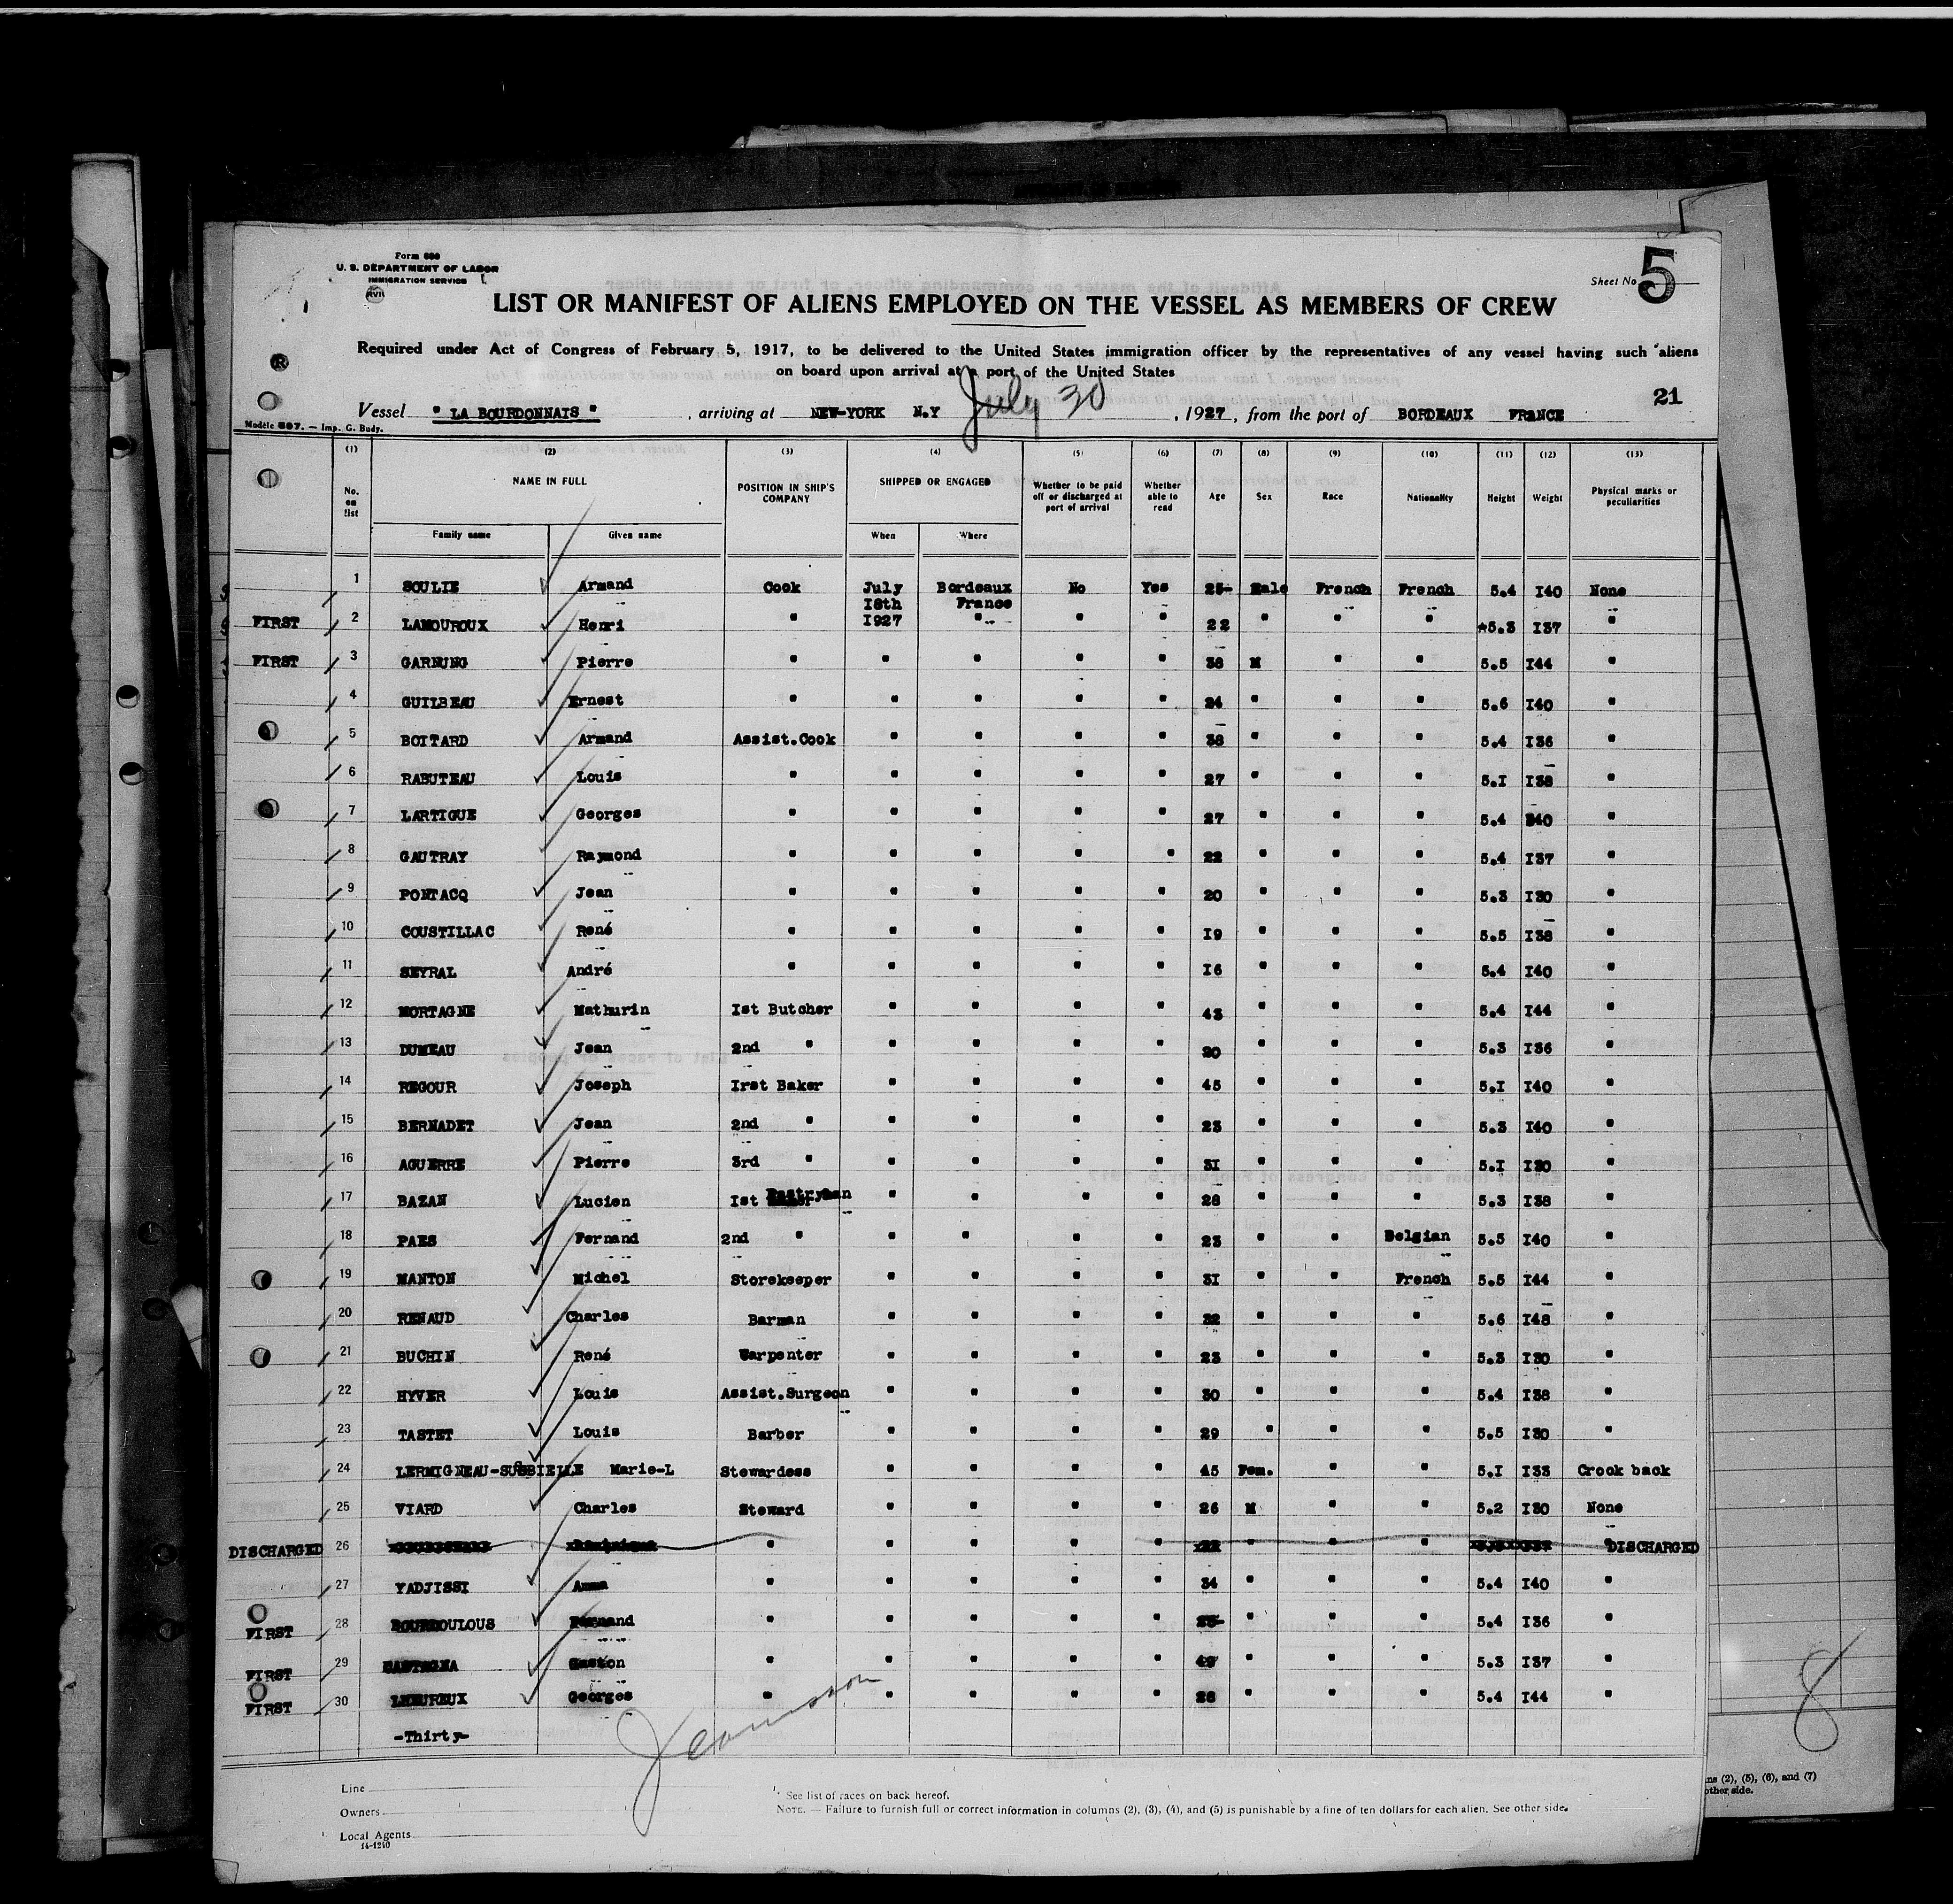 Form 680
U. S. DEPARTMENT OF LABOR
IMMIGRATION SERVICE
Sheet No 5
LIST OR MANIFEST OF ALIENS EMPLOYED ON THE VESSEL AS MEMBERS OF CREW
Required under Act of Congress of February 5, 1917, to be delivered to the United States immigration officer by the representatives of any vessel having such aliens
on board upon arrival at a port of the United States
21
Vessel " LA BOURDONNAIS " , arriving at NEW-YORK N.Y July 30 , 1927, from the port of BORDEAUX FRANCE
Modèle 597. — Imp. G. Budy.
(1) (2) (3) (4) (5) (6) (7) (8) (9) (10) (11) (12) (13)
No. on list NAME IN FULL POSITION IN SHIP'S COMPANY SHIPPED OR ENGAGED Whether to be paid off or discharged at port of arrival Whether able to read Age Sex Race Nationality Height Weight Physical marks or peculiarities
Family name Given name When Where
1 SOULIE Armand Cook July Bordeaux No Yes 25- Male French French 5.4 I40 None
I8th France
FIRST 2 LAMOUROUX Henri " I927 " " " 22 " " " 5.3 I37 "
FIRST 3 GARNUNG Pierre " " " " " 38 M " " 5.5 I44 "
4 GUILBEAU Ernest " " " " " 24 " " " 5.6 I40 "
5 BOITARD Armand Assist.Cook " " " " 38 " " " 5.4 I36 "
6 RABUTEAU Louis " " " " " 27 " " " 5.I I38 "
7 LARTIGUE Georges " " " " " 27 " " " 5.4 I40 "
8 GAUTRAY Raymond " " " " " 22 " " " 5.4 I37 "
9 PONTACQ Jean " " " " " 20 " " " 5.3 I30 "
10 COUSTILLAC René " " " " " I9 " " " 5.5 I38 "
11 SEYRAL André " " " " " I6 " " " 5.4 I40 "
12 MORTAGNE Mathurin Ist Butcher " " " " 43 " " " 5.4 I44 "
13 DUMEAU Jean 2nd " " " " " 20 " " " 5.3 I36 "
14 REGOUR Joseph Irst Baker " " " " 45 " " " 5.I I40 "
15 BERNADET Jean 2nd " " " " " 23 " " " 5.3 I40 "
16 AGUERRE Pierre 3rd " " " " " 3I " " " 5.I I30 "
17 BAZAN Lucien Ist Pastryman " " " " 28 " " " 5.3 I38 "
18 PAES Fernand 2nd " " " " " 23 " " Belgian 5.5 I40 "
19 MANTON Michel Storekeeper " " " " 3I " " French 5.5 I44 "
20 RENAUD Charles Barman " " " " 32 " " " 5.6 I48 "
21 BUCHIN René Carpenter " " " " 23 " " " 5.3 I30 "
22 HYVER Louis Assist.Surgeon " " " " 30 " " " 5.4 I38 "
23 TASTET Louis Barber " " " " 29 " " " 5.5 I30 "
24 LERMIGNEAU-SUSBIELLE Marie-L Stewardess " " " " 45 Fem. " " 5.I I33 Crook back
25 VIARD Charles Steward " " " " 26 M " " 5.2 I30 None
DISCHARGED 26 " " " " " " " " " DISCHARGED
27 YADJISSI Amma " " " " " 34 " " " 5.4 I40 "
FIRST 28 Fernand " " " " " " " " 5.4 I36 "
FIRST 29 CASTAGNA Gaston " " " " " " " " 5.3 I37 "
FIRST 30 LHEUREUX Georges " " " " " 28 " " " 5.4 I44 "
-Thirty-
Line
Owners
Local Agents
14-1240
See list of races on back hereof.
NOTE. — Failure to furnish full or correct information in columns (2), (3), (4), and (5) is punishable by a fine of ten dollars for each alien. See other side.
8
ns (2), (5), (6), and (7)
other side.